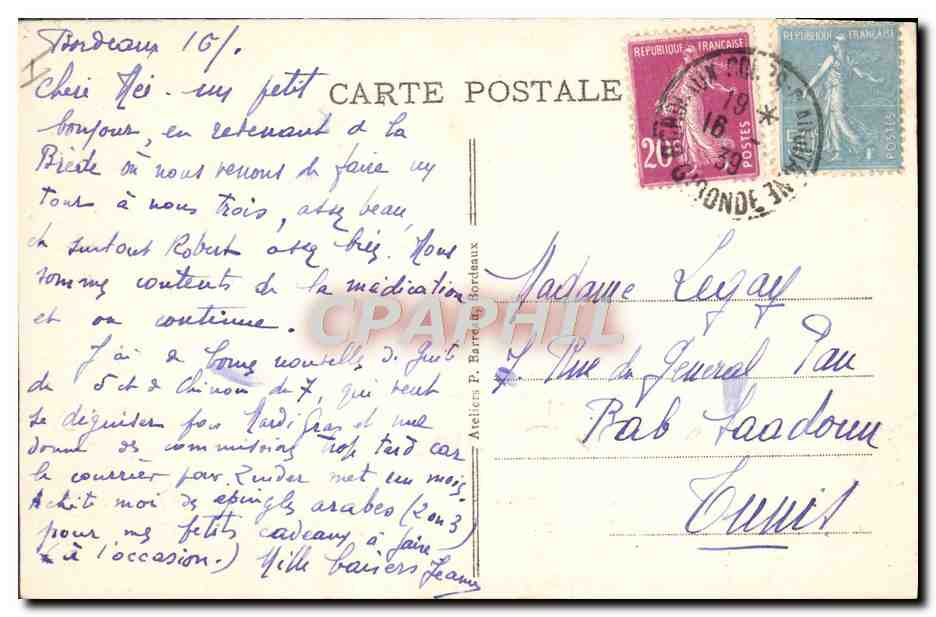 Bordeaux 16/.
Chère Mée - un petit
bonjour, en revenant de la
Brède où nous venons de faire un
tour à nous trois, assez beau,
et surtout Robert assez bien. Nous
sommes contents de la médication
et on continue.
J'ai de bonnes nouvelles de
du 5 et de Chinon du 7, qui veut
se déguiser pour Mardi Gras et me
donne des commissions trop tard car
le courrier pour Zinder met un mois.
Achète moi des épingles arabes (2 ou 3
pour mes petits cadeaux à faire
(à l'occasion.) Mille baisers Jeanne
CARTE POSTALE
Ateliers P. Barreau, Bordeaux
REPUBLIQUE FRANÇAISE
20c
POSTES
REPUBLIQUE FRANÇAISE
POSTES
19
16
39
GIRONDE
Madame Legay
7. Rue du General Pau
Bab Saadoun
Tunis
CPAPHIL